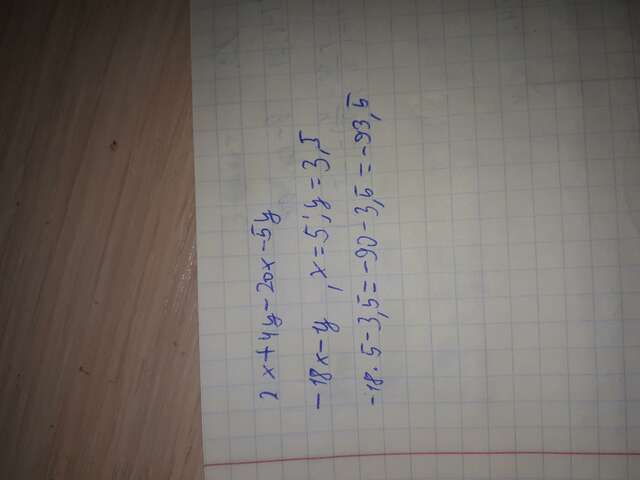 2x+4y-20x-5y
-18x-y, x=5; y=3,5
-18·5-3,5=-90-3,5=-93,5